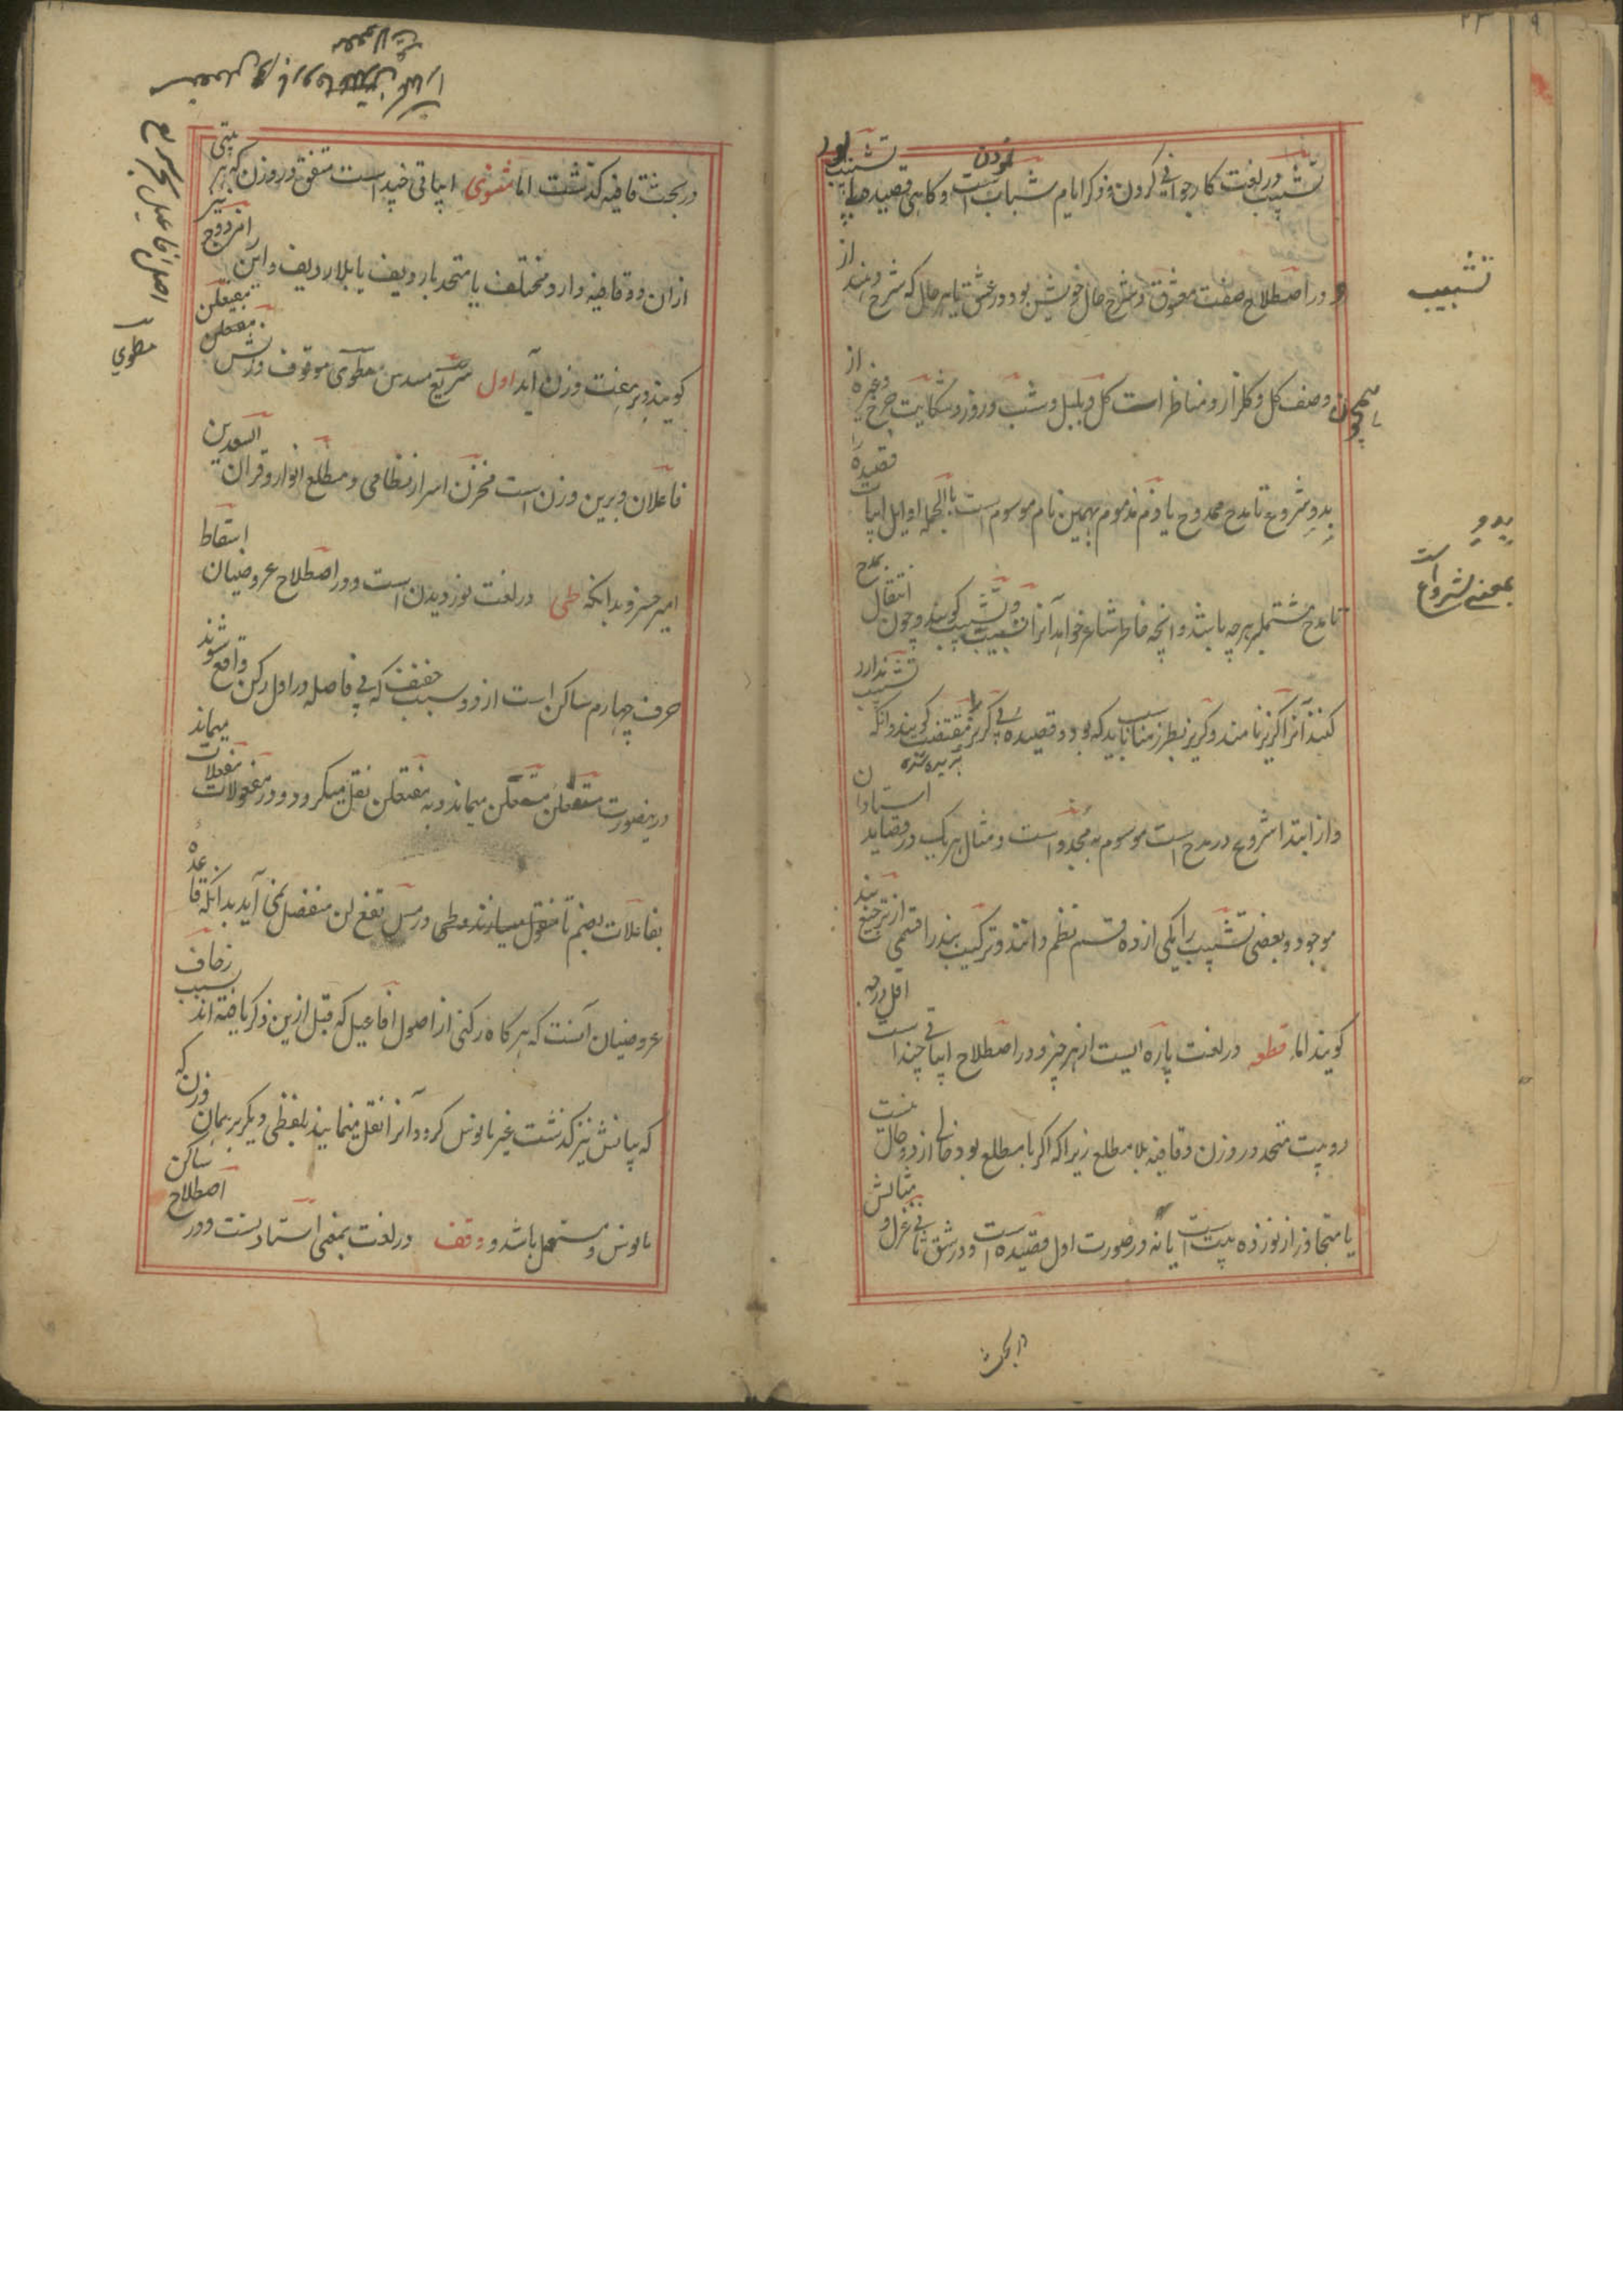 تشبیب در لغت کار جوانی کردن و ذکر ایام شباب نمودن است و کاهی قصیده بی تشبیب بود
و در اصطلاح صفت معشوق و شرح حال خویش بود در عشق یا هر حال که شرح دهند از
همچون وصف کل و کلزار و مناظرات کل و بلبل و شب و روز و شکایت چرخ و غیره از
بدو شروع تا مدح ممدوح یا ذم مذموم بهمین نام موسوم است بالجمله اوایل ابیات قصیده را
تا مدح مشتمل بر هر چه باشد و آنچه خاطر شاعر خواهد آنرا تشبیب کویند و چون انتقال بمدح
کنند آنرا کریز نامند و کریز بطرز مناسب باید که بود و قصیده بی کریز را مقتضب کویند و آنکه تشبیب ندارد
بریده شده
و از ابتدا شروع در مدح است موسوم به مجدد است و مثال هر یک در قصاید استادان
موجود و بعضی تشبیب را یکی از ده قسم نظم دانند و ترکیب بند را قسمی از ترجیع بند
کویند اما قطعه در لغت پاره ایست از هر چیز و در اصطلاح ابیاتی چند است اقل درجه
دو بیت متحد در وزن و قافیه بلا مطلع زیرا که اکر با مطلع بود خالی از دو حال نیست
یا متجاوز از نوزده بیت است یا نه در صورت اول قصیده است و در شق ثانی غزل و مثالش
در بحث
تشبیب
بدو
بمعنی شروع است
در بحث قافیه کذشت اما مثنوی ابیاتی چند است متفق در وزن که هر بیتی
ازان دو قافیه دارد مختلف یا متحد با ردیف یا بلا ردیف و این را مزدوج نیز
کویند و بر هفت وزن آید اول سریع مسدس مطوی موقوف وزنش مفتعلن مفتعلن
فاعلان و برین وزن است مخزن اسرار نظامی و مطلع انوار و قران السعدین
امیر خسرو بدانکه طی در لغت نوردیدن است و در اصطلاح عروضیان اسقاط
حرف چهارم ساکن است از دو سبب خفیف که بی فاصله در اول رکن واقع شوند
درینصورت مستفعلن مستعلن میماند و به مفتعلن نقل میکردد و در مفعولات مفعلات میماند
بفاعلات بضم تا منقول میسازند و طی در مس تفع لن منفصل نمی آید بدانکه قاعده
عروضیان آنست که هر کاه رکنی از اصول افاعیل که قبل ازین ذکر یافته اند بسبب زحاف
که بیانش نیز کذشت غیر مانوس کردد آنرا نقل مینمایند بلفظی دیکر بر همان وزن که
مانوس و مستعمل باشد و وقف در لغت بمعنی استادنست و در اصطلاح ساکن
اصل افاعیل بحر سریع
مطوی